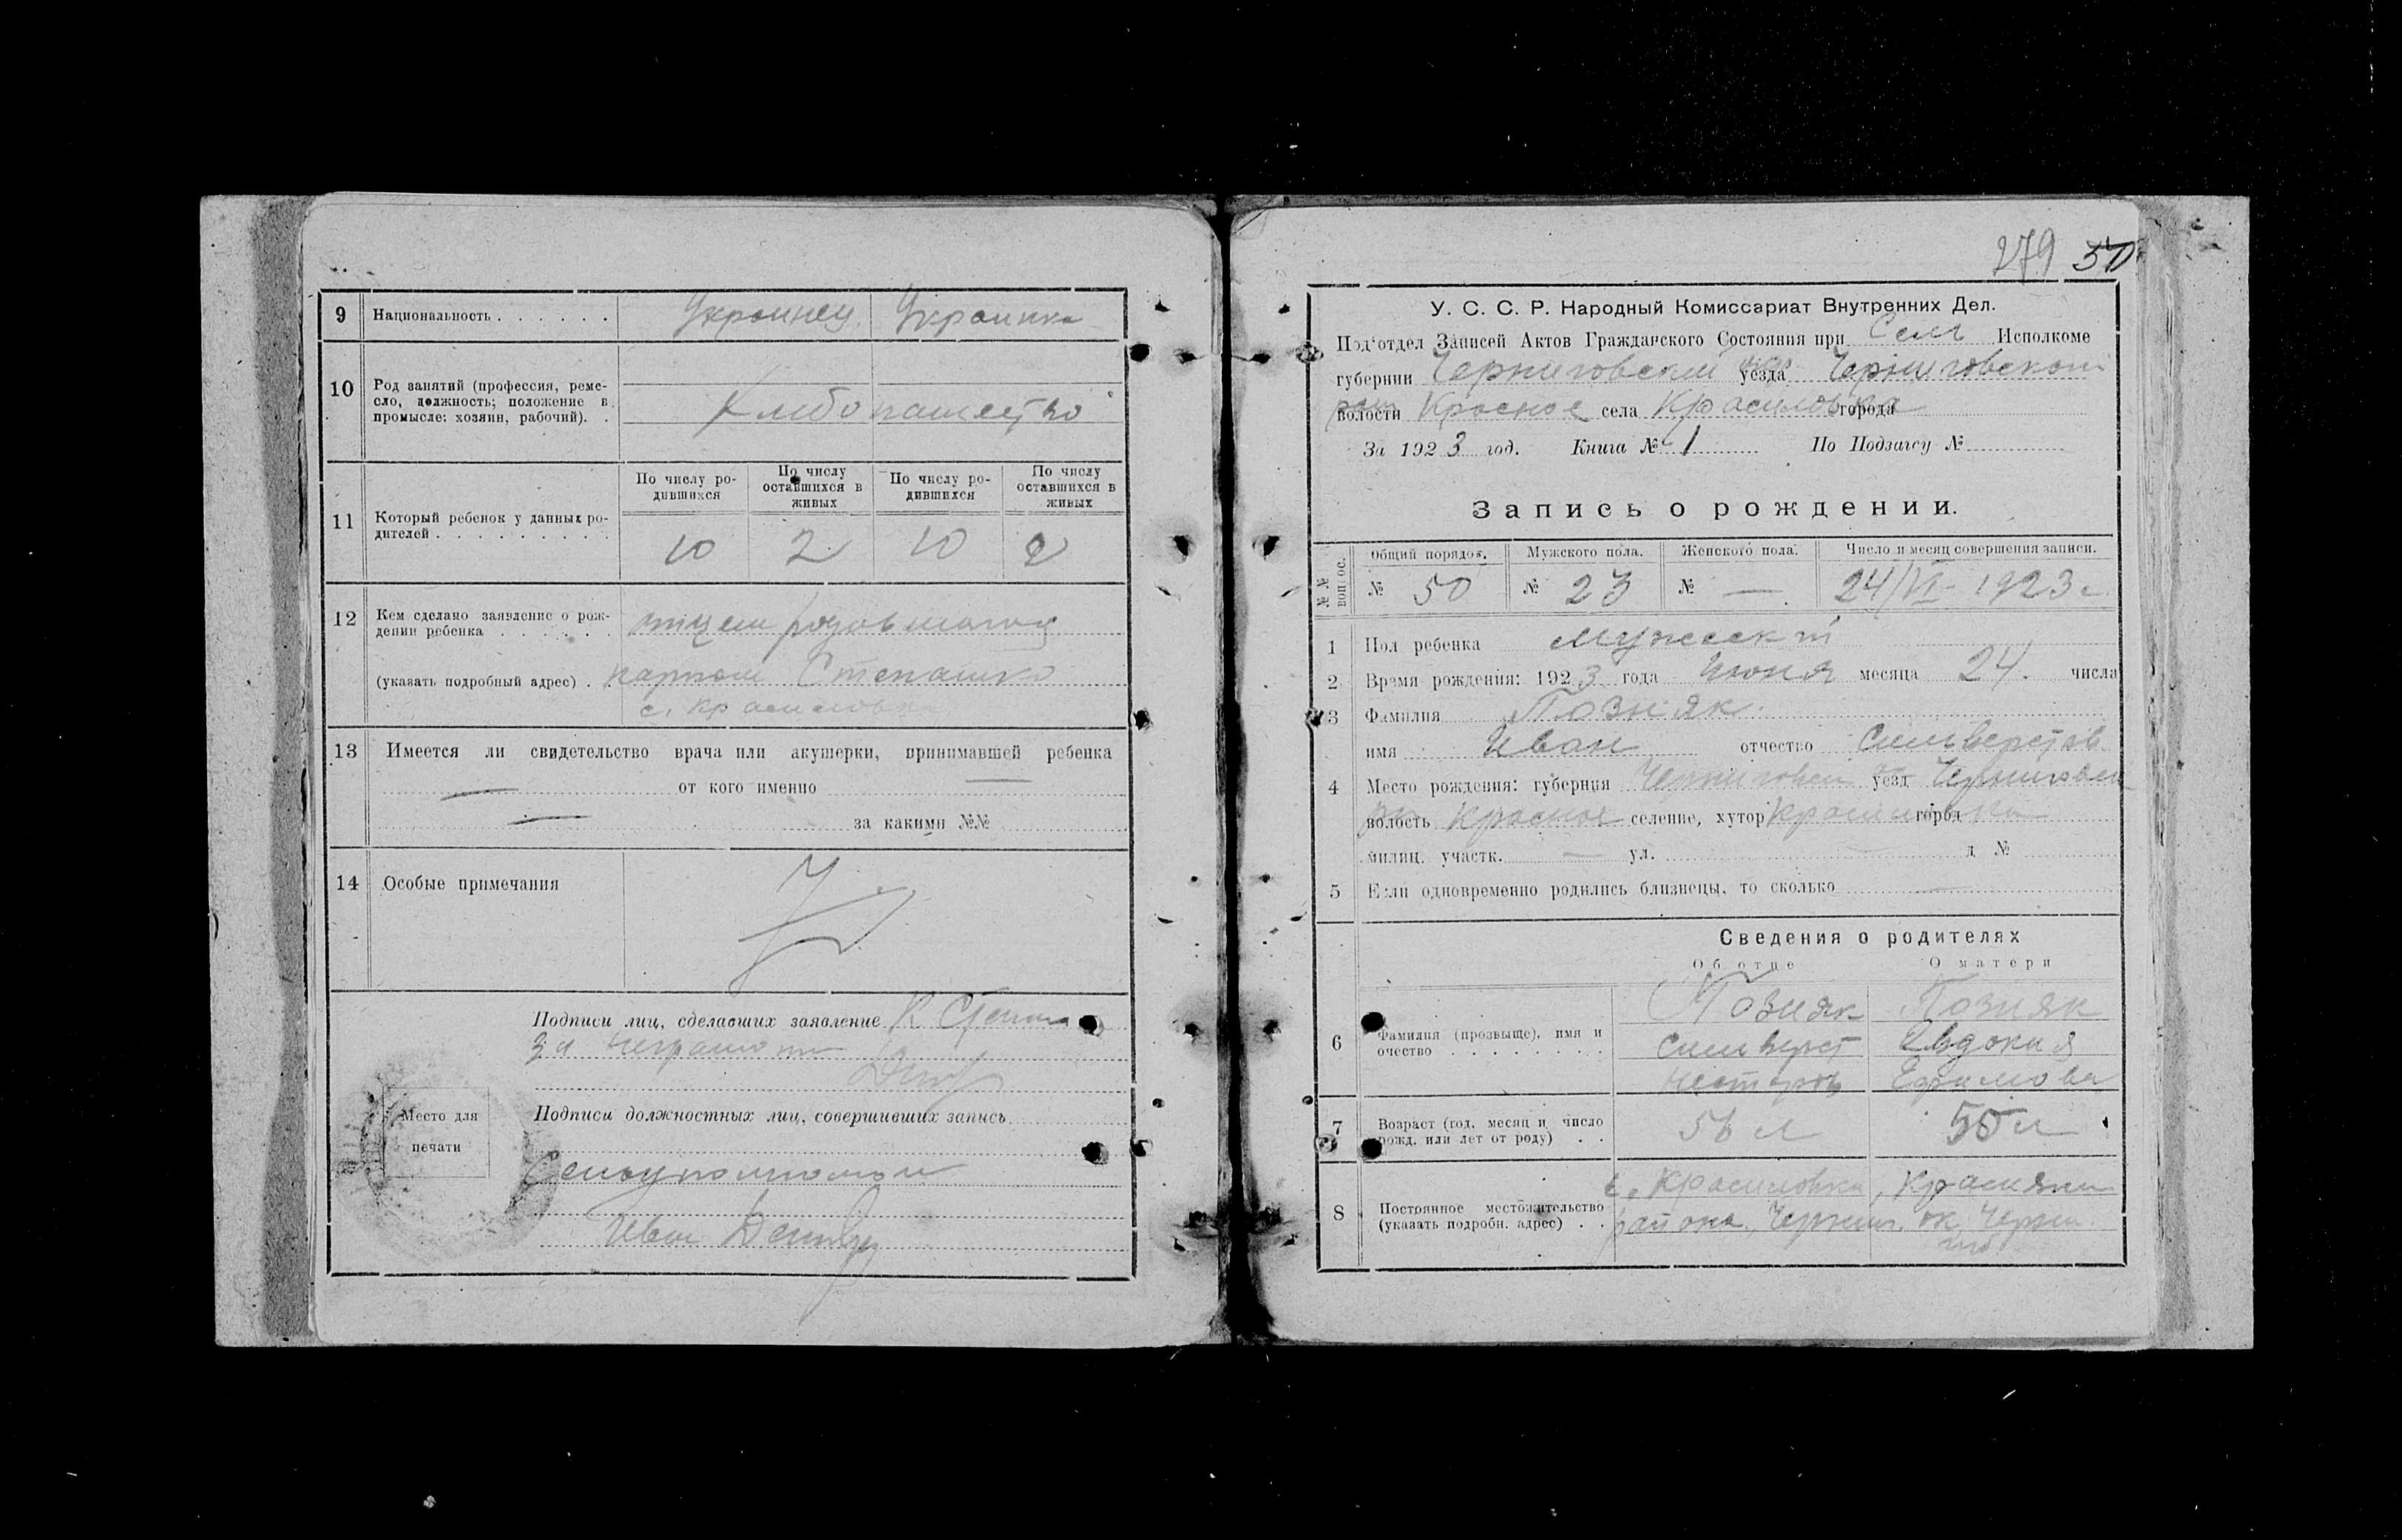 9 Национальность . . . . . . Украинец Украинка
10 Род занятий (профессия, реме-
сло, должность; положение в
промысле: хозяин, рабочий). .
Хлибопашество
11 Который ребенок у данных ро-
дителей . . . . . . . . .
По числу ро-
дившихся
По числу
оставшихся в
живых
По числу ро-
дившихся
По числу
оставшихся в
живых
10 2 10 2
12 Кем сделано заявление о рож-
дении ребенка . . . . . .
(указать подробный адрес) . .
Степашко
с. Красиловка
13 Имеется ли свидетельство врача или акушерки, принимавшей ребенка
— от кого именно —
— за какими №№
14 Особые примечания
Подписи лиц, сделавших заявление К Степаш
За неграмотн
Место для
печати
Подписи должностных лиц, совершивших запись
Иван
279 50
У. С. С. Р. Народный Комиссариат Внутренних Дел.
Под'отдел Записей Актов Гражданского Состояния при Сель Исполкоме
губернии Черниговской уезда Черниговского
волости Красное села Красиловка города
За 1923 год. Книга № 1 По Подзагсу №
Запись о рождении.
№№ вопрос. Общий порядок. Мужского пола. Женского пола. Число и месяц совершения записи.
№ 50 № 23 № — 24/VI - 1923 г.
1 Пол ребенка Мужеский
2 Время рождения: 1923 года Июня месяца 24. числа
3 Фамилия Позняк.
имя Иван отчество Сильверстов
4 Место рождения: губерния Черниговск уезд Черниговск
волость Красное селение, хутор Красиловка город
милиц. участк. — ул. — д №
5 Если одновременно родились близнецы, то сколько —
Сведения о родителях
Об отце О матери
6 Фамилия (прозвыще), имя и
очество . . . . . . . .
Позняк Позняк
Сильверст Евдокия
Нестеров Ефимова
7 Возраст (год, месяц и число
рожд. или лет от роду) . .
56 л 50 л
8 Постоянное местожительство
(указать подробн. адрес) . .
с. Красиловка,
района, Черниг. ок. Черни
губ